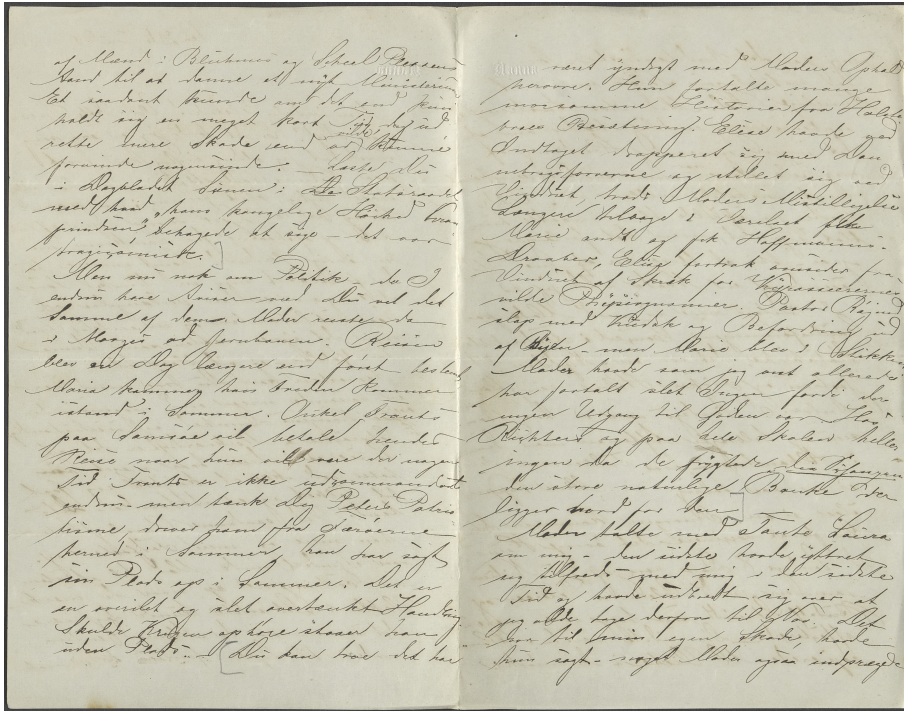 af Mænd i Bluhmes og Scheel Plessens
Aand til at danne et nyt Ministerium
Et saadant kunde om det end kun
holdt sig en meget kort Tid dog ud
rette mere Skade end vilde kunne
forvinde nogensinde. — Læste Du
i Dagbladet Scenen i Statsraadet
med hvad "hans kongelige Høihed Kron
prindsen" behagede at sige – det var
tragicomisk.
Men nu nok om Politik – da I
endnu have Aviser ved Du vel det
samme af dem. Moder reiste da
i Morges ad Jernbanen. Reisen
blev en Dag længere end først bestemt
Maria kommer hvis Freden kommer
istand i Sommer. Onkel Frants
paa Samsøe vil betale hendes
Reise naar hun vil være der nogen
Tid Frants er ikke udcommanderet
endnu – men tænk Dig Peters Patrio
tisme drever ham fra Færøerne
herned i Sommer han har sagt
sin Plads op i Sommer. Det er
en overilet og slet overtænkt Handling
Skulde Krigen ophøre staaer han
uden Plads. – Du kan troe det har
været yndigt med Moders Ophold
herovre. Hun fortalte mange
morsomme Historier fra Holste
broes Besætning. Elise havde ved
Indtoget drapperet sig med Dan
nebrogsfarverne og stillet sig ved
Vinduet, trods Moders Mistillid
Længere tilbage i Værelset
Marie ondt og fik Hoffmanns-
Draaber, Elise fortrak omsider fra
Vinduet af Skræk for Kyrassierernes
vilde Pastor
slap med Hudak og Befordring ud
af Byen – men Marie blev i Stikken
Moder havde som jeg vist allerede
har fortalt slet Ingen fordi der
ingen Udgang til Gaden var Hos
Richters og paa hele Skolen heller
ingen da de frygtede
den store naturlige Banke der
ligger tæt for den
Moder talte med Tante Laura
om mig – den sidste havde yttret
sig tilfreds med mig i den sidste
Tid og havde udbredt sig over at
jeg vilde tage derfra til Mai. Det
var til min egen Skade, havde
hun sagt – noget Moder ogsaa indprægede